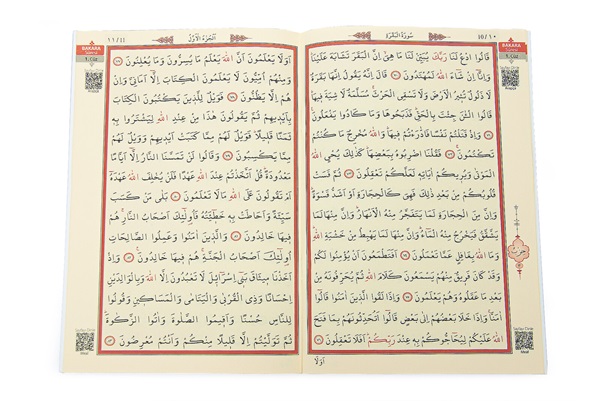 ١٠/10
سُورَةُ الْبَقَرَةِ
BAKARA
Sûresi
قَالُوا ادْعُ لَنَا رَبَّكَ يُبَيِّنْ لَنَا مَا هِيَ اِنَّ الْبَقَرَ تَشَابَهَ عَلَيْنَا
وَاِنَّا اِنْ شَاءَ اللّٰهُ لَمُهْتَدُونَ ﴿٧٠﴾ قَالَ اِنَّهُ يَقُولُ اِنَّهَا بَقَرَةٌ
لَا ذَلُولٌ تُثِيرُ الْاَرْضَ وَلَا تَسْقِي الْحَرْثَ مُسَلَّمَةٌ لَا شِيَةَ فِيهَا
قَالُوا الْـٰٔنَ جِئْتَ بِالْحَقِّ فَذَبَحُوهَا وَمَا كَادُوا يَفْعَلُونَ
﴿٧١﴾ وَاِذْ قَتَلْتُمْ نَفْسًا فَادّٰرَءْتُمْ فِيهَا وَاللّٰهُ مُخْرِجٌ مَا كُنْتُمْ
تَكْتُمُونَ ﴿٧٢﴾ فَقُلْنَا اضْرِبُوهُ بِبَعْضِهَا كَذٰلِكَ يُحْيِ اللّٰهُ
الْمَوْتٰى وَيُرِيكُمْ اٰيَاتِهِ لَعَلَّكُمْ تَعْقِلُونَ ﴿٧٣﴾ ثُمَّ قَسَتْ
قُلُوبُكُمْ مِنْ بَعْدِ ذٰلِكَ فَهِيَ كَالْحِجَارَةِ اَوْ اَشَدُّ قَسْوَةً
وَاِنَّ مِنَ الْحِجَارَةِ لَمَا يَتَفَجَّرُ مِنْهُ الْاَنْهَارُ وَاِنَّ مِنْهَا لَمَا
يَشَّقَّقُ فَيَخْرُجُ مِنْهُ الْمَاءُ وَاِنَّ مِنْهَا لَمَا يَهْبِطُ مِنْ خَشْيَةِ اللّٰهِ
وَمَا اللّٰهُ بِغَافِلٍ عَمَّا تَعْمَلُونَ ﴿٧٤﴾ اَفَتَطْمَعُونَ اَنْ يُؤْمِنُوا لَكُمْ
وَقَدْ كَانَ فَرِيقٌ مِنْهُمْ يَسْمَعُونَ كَلَامَ اللّٰهِ ثُمَّ يُحَرِّفُونَهُ مِنْ
بَعْدِ مَا عَقَلُوهُ وَهُمْ يَعْلَمُونَ ﴿٧٥﴾ وَاِذَا لَقُوا الَّذِينَ اٰمَنُوا قَالُوا
اٰمَنَّا وَاِذَا خَلَا بَعْضُهُمْ اِلٰى بَعْضٍ قَالُوا اَتُحَدِّثُونَهُمْ بِمَا فَتَحَ
اللّٰهُ عَلَيْكُمْ لِيُحَاجُّوكُمْ بِهِ عِنْدَ رَبِّكُمْ اَفَلَا تَعْقِلُونَ ﴿٧٦﴾
اَوَلَا
اَلْجُزْءُ الْاَوَّلُ
١١/11
BAKARA
Sûresi
اَوَلَا يَعْلَمُونَ اَنَّ اللّٰهَ يَعْلَمُ مَا يُسِرُّونَ وَمَا يُعْلِنُونَ ﴿٧٧﴾
وَمِنْهُمْ اُمِّيُّونَ لَا يَعْلَمُونَ الْكِتَابَ اِلَّا اَمَانِيَّ وَاِنْ
هُمْ اِلَّا يَظُنُّونَ ﴿٧٨﴾ فَوَيْلٌ لِلَّذِينَ يَكْتُبُونَ الْكِتَابَ
بِاَيْدِيهِمْ ثُمَّ يَقُولُونَ هٰذَا مِنْ عِنْدِ اللّٰهِ لِيَشْتَرُوا بِهِ
ثَمَنًا قَلِيلًا فَوَيْلٌ لَهُمْ مِمَّا كَتَبَتْ اَيْدِيهِمْ وَوَيْلٌ لَهُمْ
مِمَّا يَكْسِبُونَ ﴿٧٩﴾ وَقَالُوا لَنْ تَمَسَّنَا النَّارُ اِلَّا اَيَّامًا
مَعْدُودَةً قُلْ اَتَّخَذْتُمْ عِنْدَ اللّٰهِ عَهْدًا فَلَنْ يُخْلِفَ اللّٰهُ عَهْدَهُ
اَمْ تَقُولُونَ عَلَى اللّٰهِ مَا لَا تَعْلَمُونَ ﴿٨٠﴾ بَلٰى مَنْ كَسَبَ
سَيِّئَةً وَاَحَاطَتْ بِهِ خَطِيئَتُهُ فَاُولٰئِكَ اَصْحَابُ النَّارِ هُمْ
فِيهَا خَالِدُونَ ﴿٨١﴾ وَالَّذِينَ اٰمَنُوا وَعَمِلُوا الصَّالِحَاتِ
اُولٰئِكَ اَصْحَابُ الْجَنَّةِ هُمْ فِيهَا خَالِدُونَ ﴿٨٢﴾ وَاِذْ
اَخَذْنَا مِيثَاقَ بَنِي اِسْرَائِيلَ لَا تَعْبُدُونَ اِلَّا اللّٰهَ وَبِالْوَالِدَيْنِ
اِحْسَانًا وَذِي الْقُرْبٰى وَالْيَتَامٰى وَالْمَسَاكِينِ وَقُولُوا
لِلنَّاسِ حُسْنًا وَاَقِيمُوا الصَّلٰوةَ وَاٰتُوا الزَّكٰوةَ
ثُمَّ تَوَلَّيْتُمْ اِلَّا قَلِيلًا مِنْكُمْ وَاَنْتُمْ مُعْرِضُونَ ﴿٨٣﴾